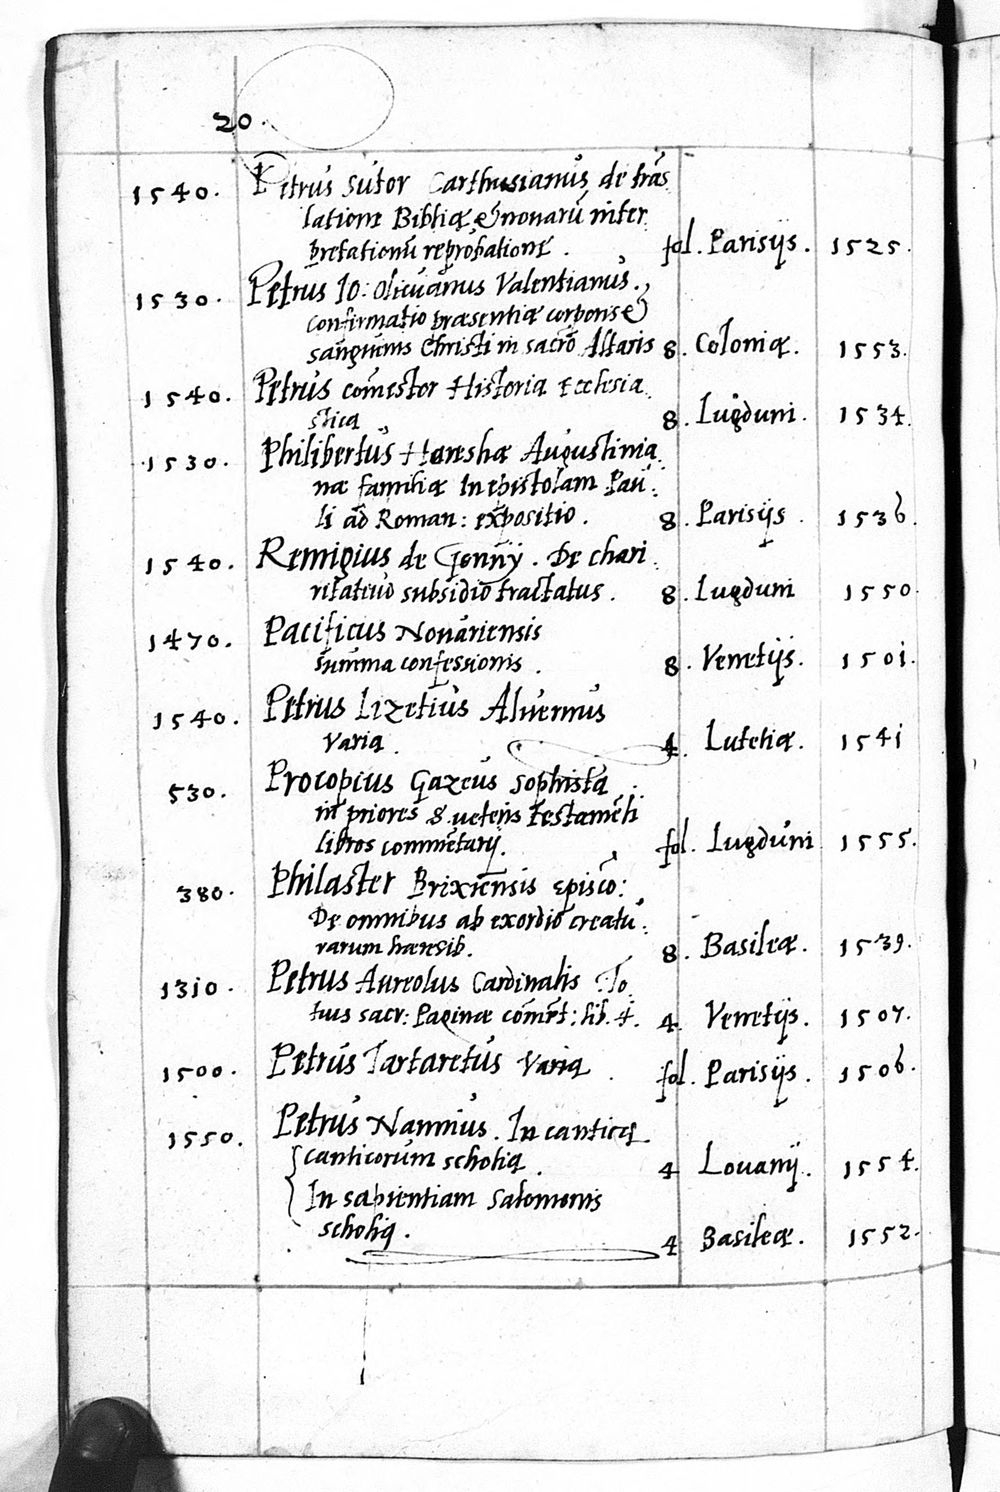 20.
1540. Petrus Sutor Carthusianus de tras
latione Bibliæ & nonarū inter
pretationū reprobatione. fol. Parisijs. 1525.
1530. Petrus Io: Olivianus Valentianus.
confirmatio præsentiæ corporis &
sanguinis Christi in sacrō Altaris 8. Coloniæ. 1553.
1540. Petrus comestor Historia Ecclesia
stica 8. Lugduni. 1534.
1530. Philibertus Hareshæ Augustinia
næ familiæ In epistolam Pau:
li ad Roman: expositio. 8. Parisijs. 1536.
1540. Remigius de Gonnÿ. De chari
ritativo subsidio tractatus. 8. Lugduni 1550.
1470. Pacificus Novariensis
summa confessionis. 8. Venetijs. 1501.
1540. Petrus Lizetius Alvernus
varia. 4. Lutetiæ. 1541
530. Procopius Gazeus Sophista
in priores 8. veteris testamēti
libros commētarij. fol. Lugduni 1555.
380. Philaster Brixiēnsis episco:
De omnibus ab exordio creatu:
rarum hæresib. 8. Basileæ. 1539.
1310. Petrus Aureolus Cardinalis To
tius sacr: Paginæ comēt: lib. 4. 4. Venetijs. 1507.
1500. Petrus Tartaretus varia. fol. Parisijs. 1506.
1550. Petrus Nannius. In cantica
canticorum scholia. 4 Lovanij. 1554.
In sapientiam Salomonis
scholia. 4 Basileæ. 1552.